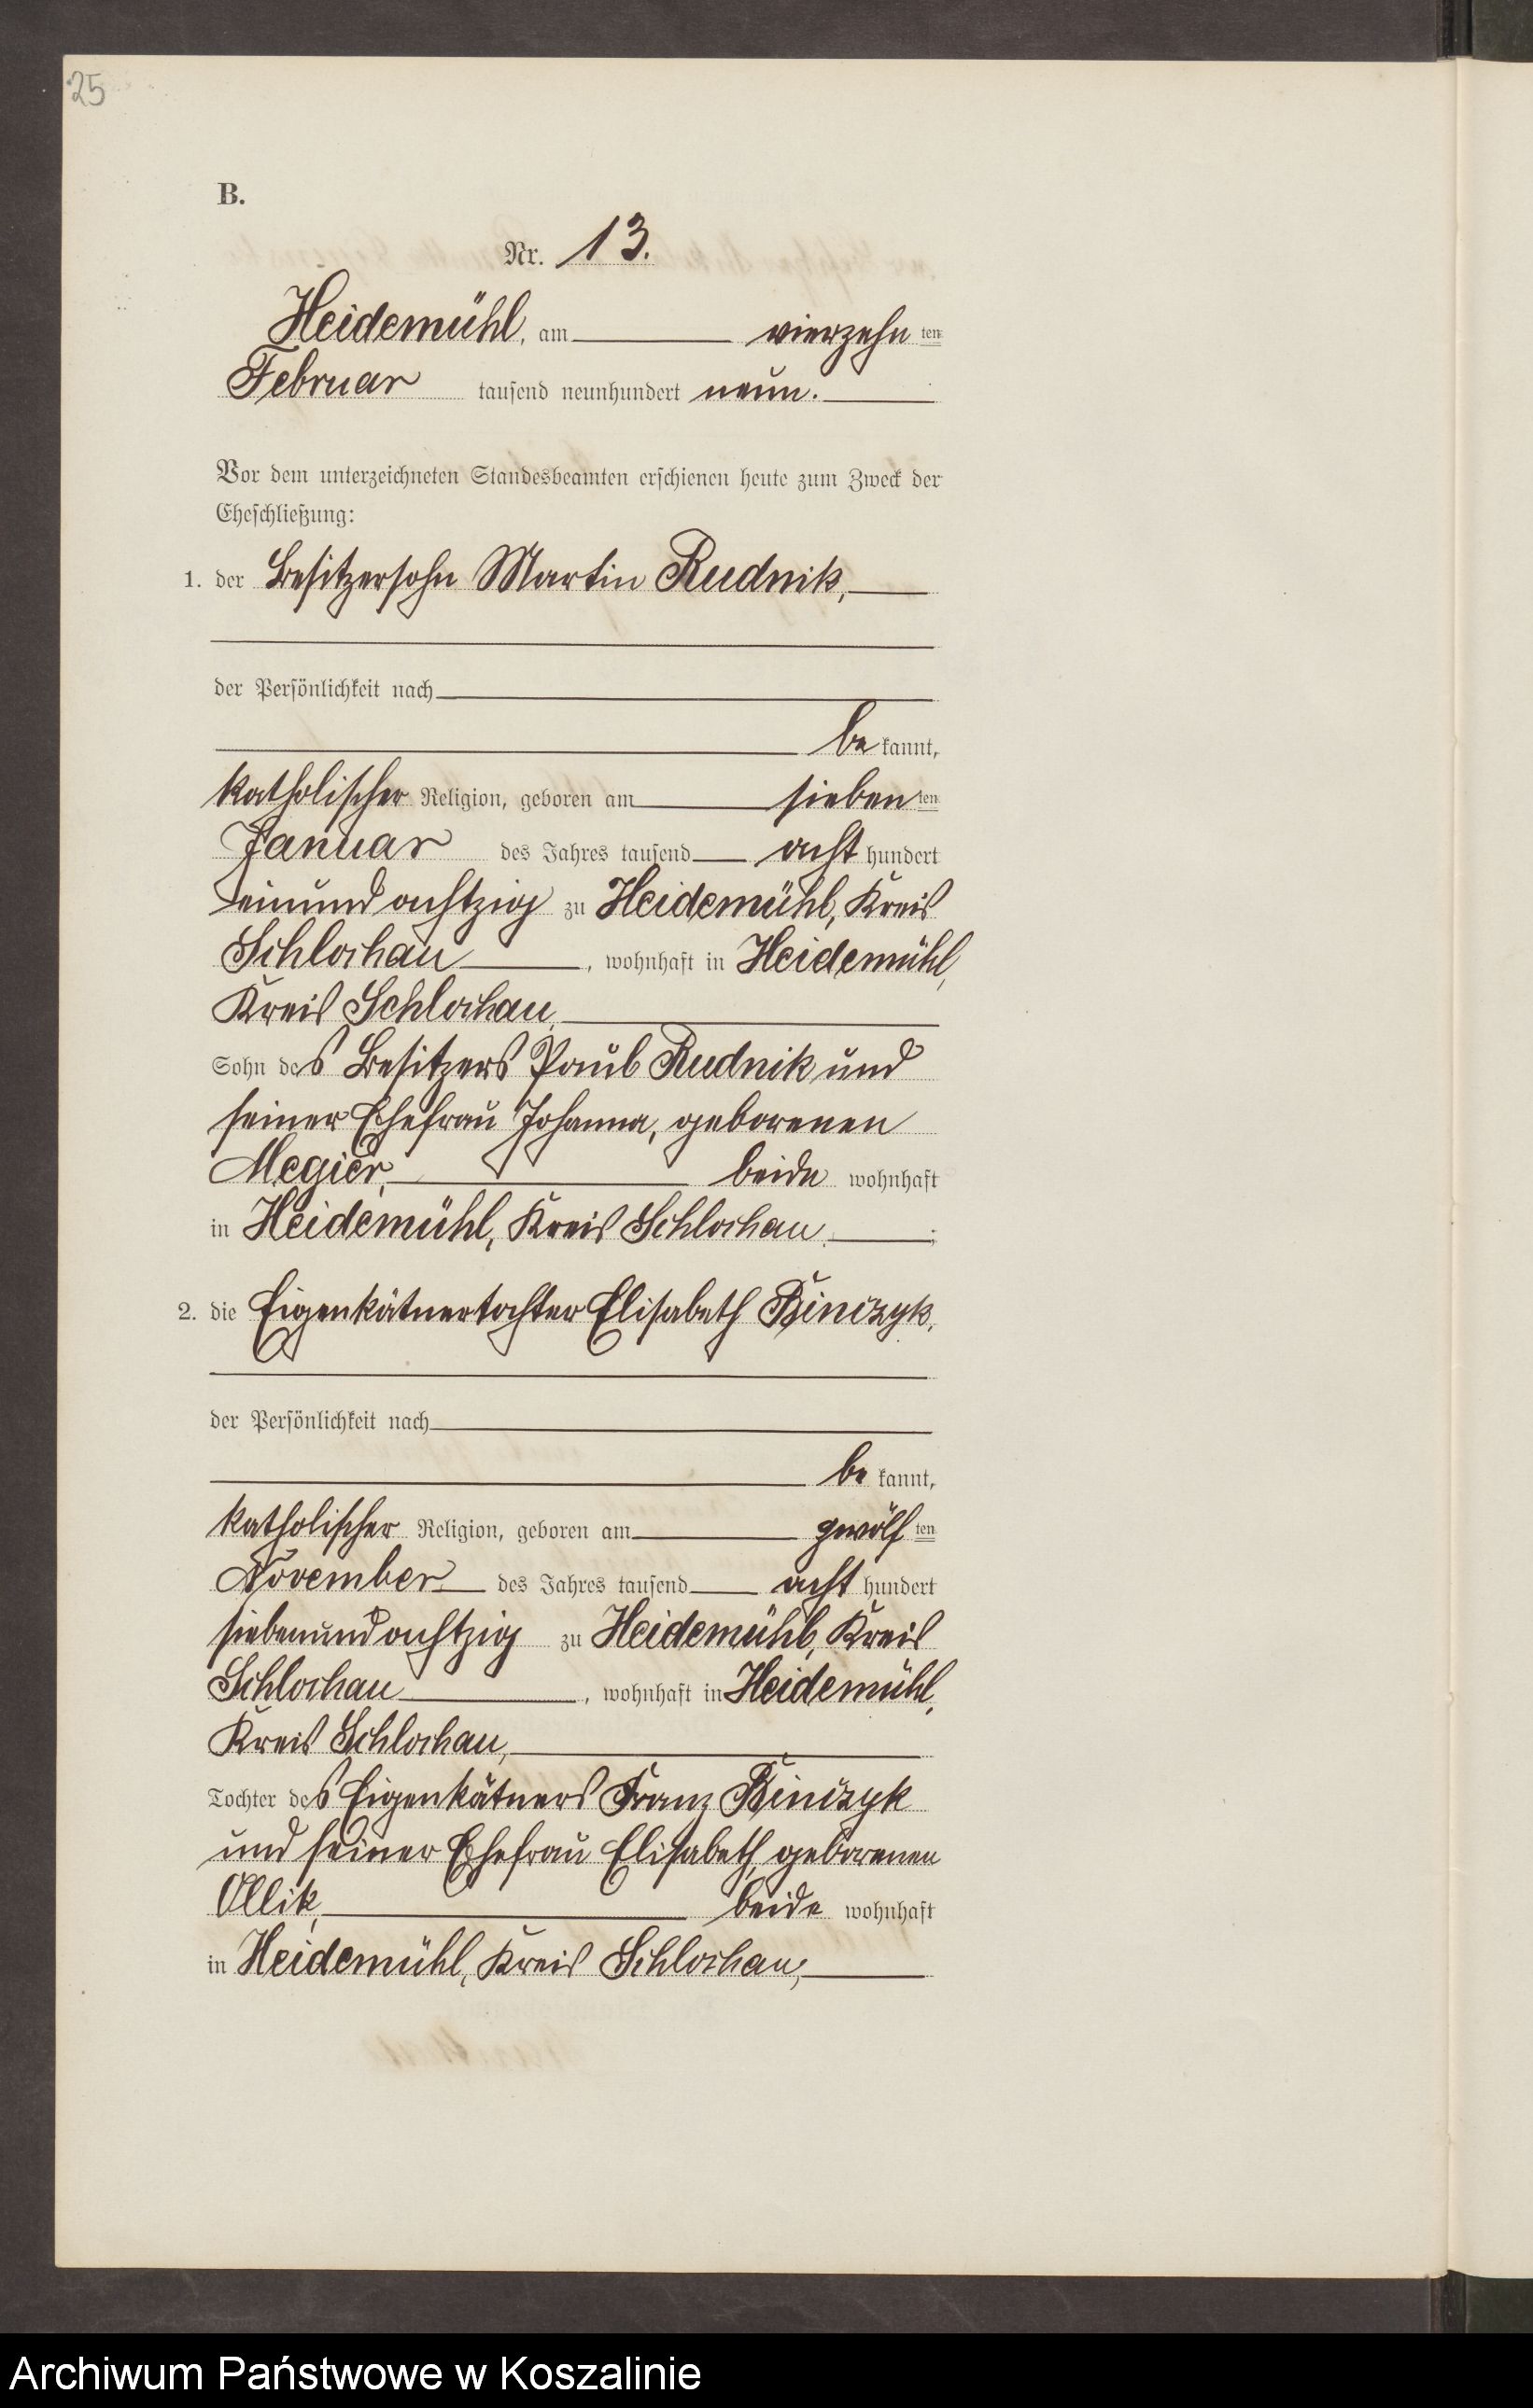 25
B.
Nr. 13.
Heidemühl, am vierzehn ten
Februar tausend neunhundert neun.
Vor dem unterzeichneten Standesbeamten erschienen heute zum Zweck der
Eheschließung:
1. der Besitzersohn Martin Rudnik,
der Persönlichkeit nach
be kannt,
katholischer Religion, geboren am sieben ten
Januar des Jahres tausend acht hundert
einundachtzig zu Heidemühl, Kreis
Schlochau, wohnhaft in Heidemühl,
Kreis Schlochau,
Sohn des Besitzers Paul Rudnik und
seiner Ehefrau Johanna, geborenen
Megier, beide wohnhaft
in Heidemühl, Kreis Schlochau,;
2. die Eigenkätnertochter Elisabeth
der Persönlichkeit nach
be kannt,
katholischer Religion, geboren am zwölf ten
November des Jahres tausend acht hundert
siebenundachtzig zu Heidemühl, Kreis
Schlochau, wohnhaft in Heidemühl,
Kreis Schlochau,
Tochter des Eigenkätners Franz
und seiner Ehefrau Elisabeth, geborenen
Ollik, beide wohnhaft
in Heidemühl, Kreis Schlochau,
Archiwum Państwowe w Koszalinie